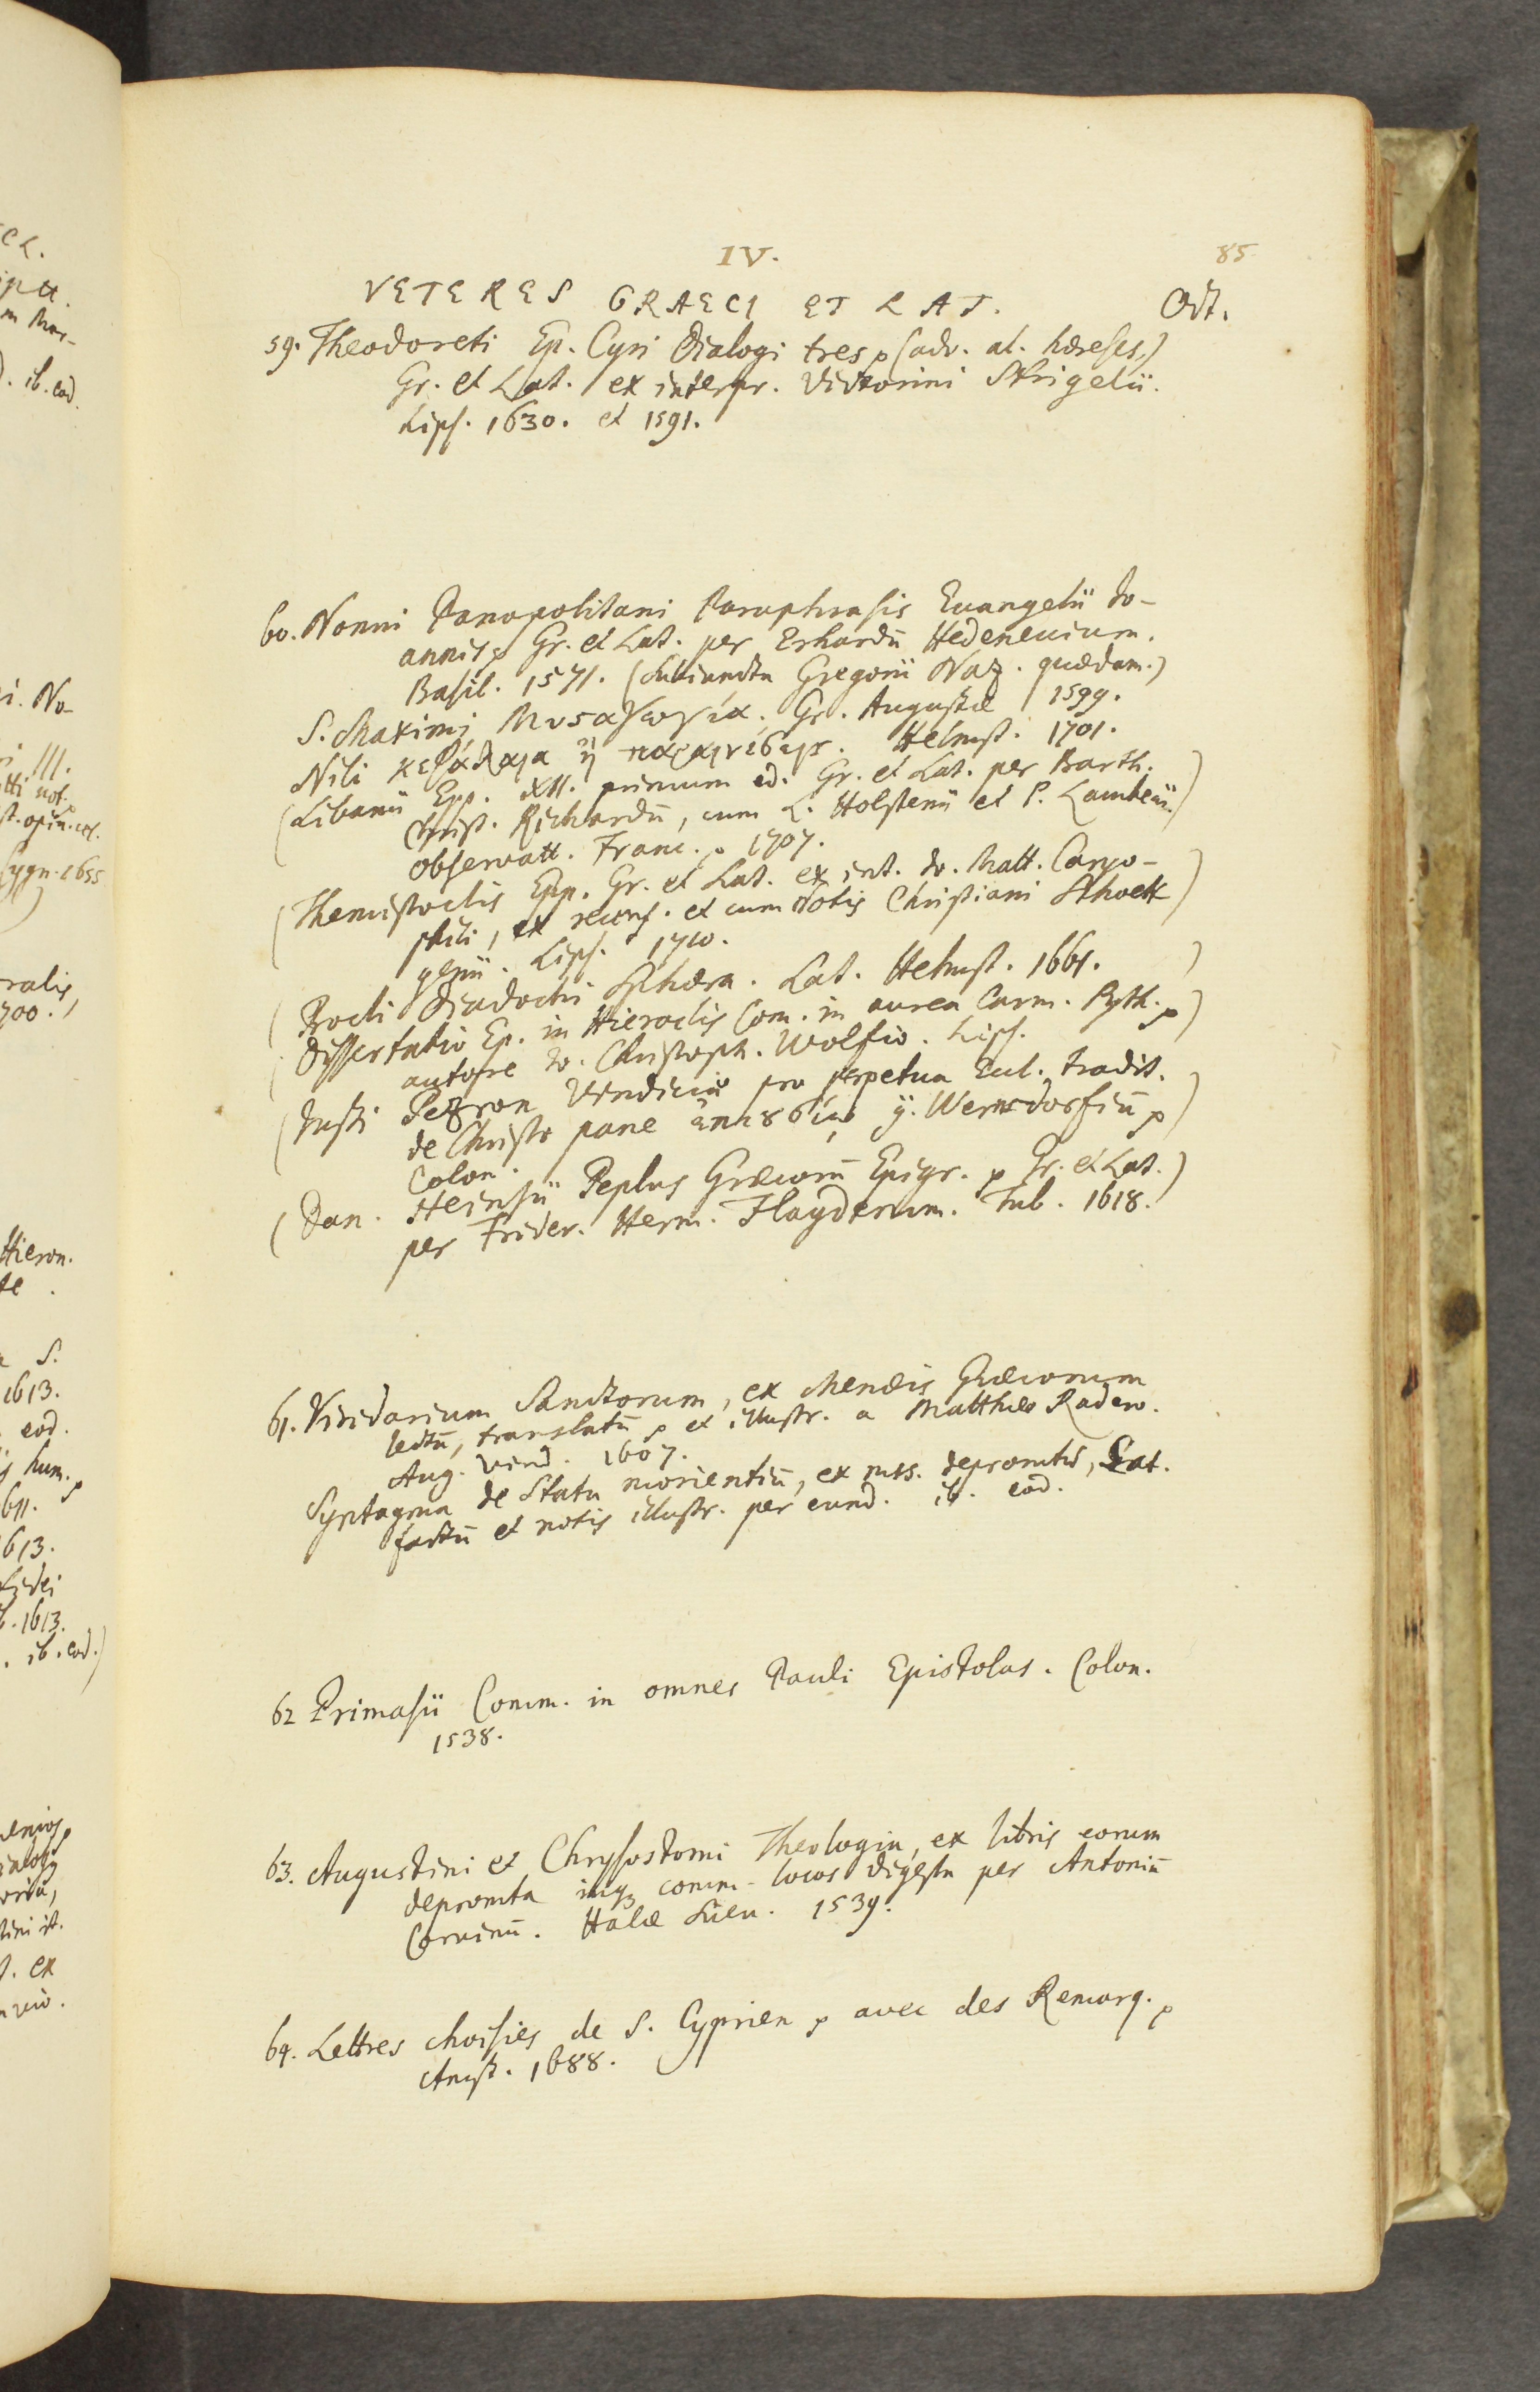 IV.
85
VETERES GRAECI ET LAT. Oct.
59. Theodoreti Ep. Cyri Dialogi tres p (adv. al. hæreses,)
Gr. et Lat. ex interpr. Victorini Strigelii.
Lips. 1630. et 1591.
60. Nonni Panopolitani Paraphrasis Euangelii Jo-
annis p Gr. et Lat. per Erhardū Hedeneccium.
Basil. 1571. (Subiuncta Gregorii Naz. quædam.)
S. Maximi Μυσαγωγία. Gr. Augustæ 1599.
Nili κεφάλαια ἢ παραινέσεις. Helmst. 1701.
(Libanii Epp. XII. primum ed. Gr. et Lat. per Barth.
Christ. Richardū, cum L. Holstenii et P. Lambecii)
observatt. Franc. p 1707.
(Themistoclis Epp. Gr. et Lat. ex int. Jo. Matt. Caryo-
phili, ex recens. et cum notis Christiani Schoett
genii. Lips. 1710. )
(Procli Diadochi Sphæra. Lat. Helmst. 1661. )
(Dissertatio Ep. in Hieroclis Com. in aurea Carm. Pyth. p)
autore Jo. Christoph. Wolfio. Lips.
(Justi Vindiciæ pro perpetua Eccl. tradit.
de Christo pane ἐπιουσίῳ Wernsdorfiū p)
Colon.
(Dan. Heinsii Peplus Græcorū Epigr. p Gr. et Lat.)
per Frider. Herm. Flayderum. Tub. 1618.
61. Viridarium Sanctorum, ex Menæis Græcorum
lectū, translatū p et illustr. a Matthæo Radero.
Aug. Vind. 1607.
Syntagma de Statu morientiū, ex mss. depromtū, Lat.
factū et notis illustr. per eund. ib. eod.
62 Primasii Comm. in omnes Pauli Epistolas. Colon.
1538.
63. Augustini et Chrysostomi Theologia, ex libris eorum
depromta inq₃ comm. locos digesta per Antoniū
Corvinū. Halæ Suev. 1539.
64. Lettres choisies de S. Cyprien p avec des Remarq. p
Amst. 1688.